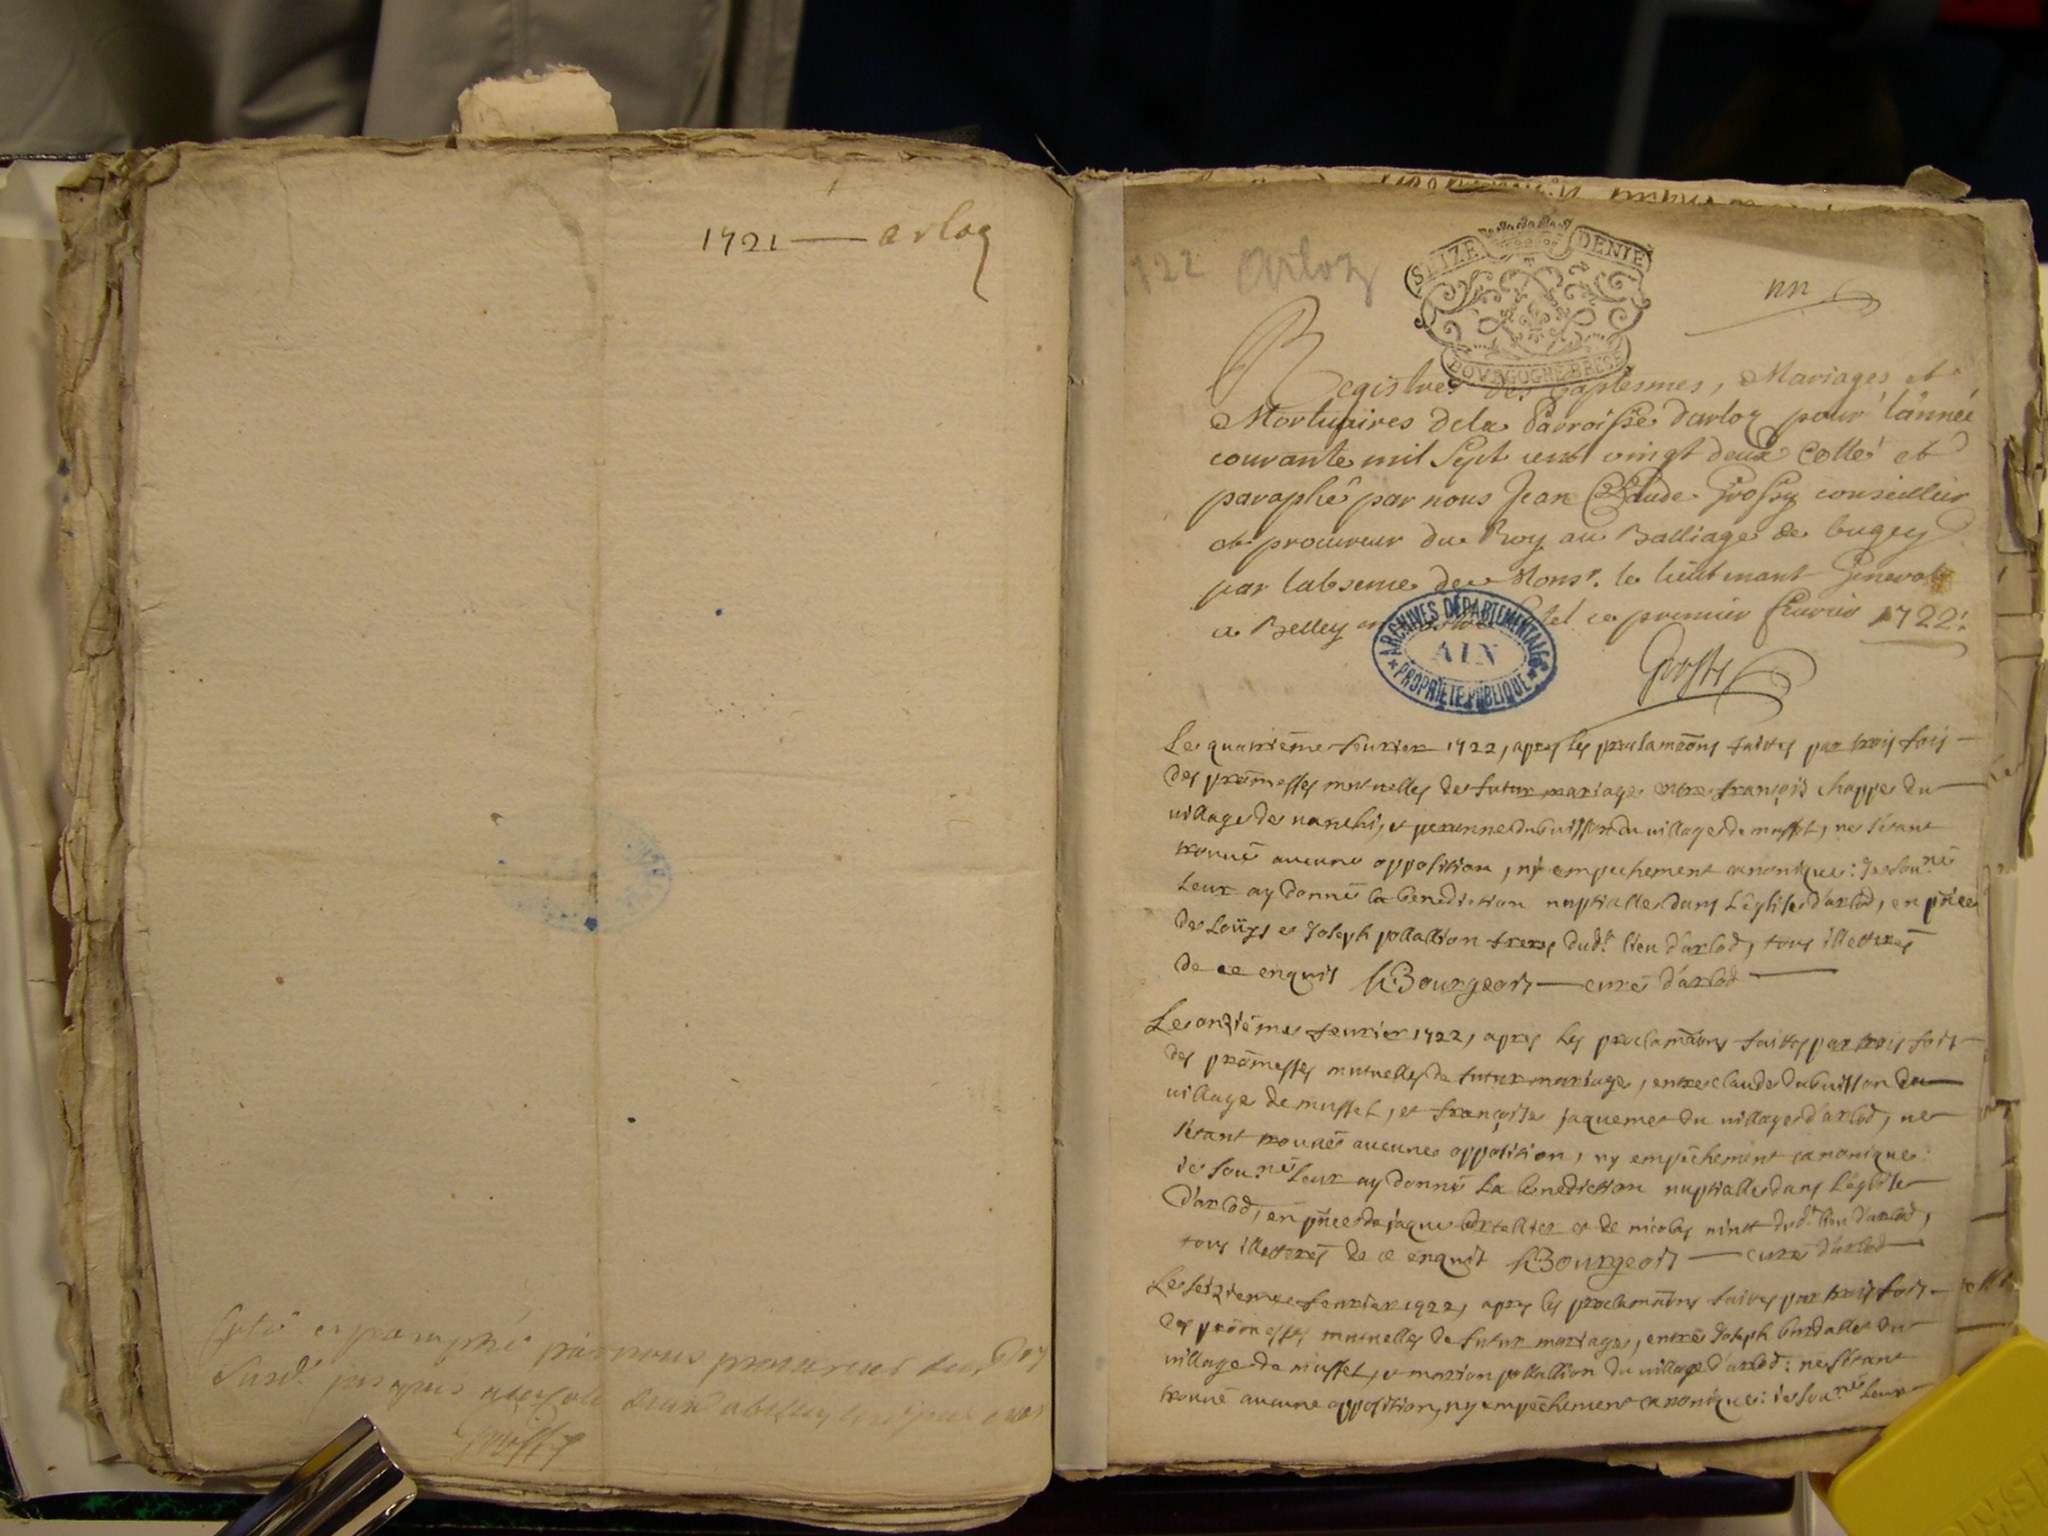 1721 — arloz
1722 Arloz
SEIZE DENIE
BOVRGOGNE BRESSE
Registres des Baptesmes, Mariages et
Mortuaires de la Parroisse darloz pour lannéé
courante mil Sept cent vingt deux Cotté et
paraphé par nous Jean Claude Grossy conseiller
et procureur du Roy au Balliage de bugey
par labsence de Monsr. le lieutenant General
a Belley en hostel ce premier fevrier 1722.
ARCHIVES DÉPARTEMENTALES
AIN
PROPRIÉTÉ PUBLIQUE
Le quatriéme feurier 1722, apres les proclamãons faites par trois fois
des proémesses mutuelles de futur mariage entre françois chappe du
village de , et du village de mussel, ne sétant
trouué aucune opposition, ny empechement canonique: Je sou.né
Leur ay donné la benediction nuptialle dans Léglise d'arlod, en pñce
de Loüys et Joseph pollallion freres dud.t lieu d'arlod, tous illettrés
de ce enquis Bourgeois — curé d'arlod
Le onziéme feurier 1722, apres les proclamãons faittes par trois fois
des proémesses mutuelles de futur mariage, entre claude dubuisson du
village de mussel, et françoise jaquemet du village d'arlod, ne
sétant trouué aucune opposition, ny empéchement canonique:
ie sou.né Leur ay donné La benediction nuptialle dans Léglise
d'arlod, en pñce de jaque et de nicolas dud.t lieu d'arlod,
tous illettrés de ce enquis Bourgeois — curé d'arlod
Le seizieme feurier 1722, apres les proclamãons faites par trois fois
des proémesses mutuelles de futur mariage, entre Joseph du
village de mussel, et marion pollallion du village d'arlod: ne sétant
trouué aucune opposition, ny empéchement canonique: ie sou.né Leur
Coté et paraphé par nous procureur du Roy